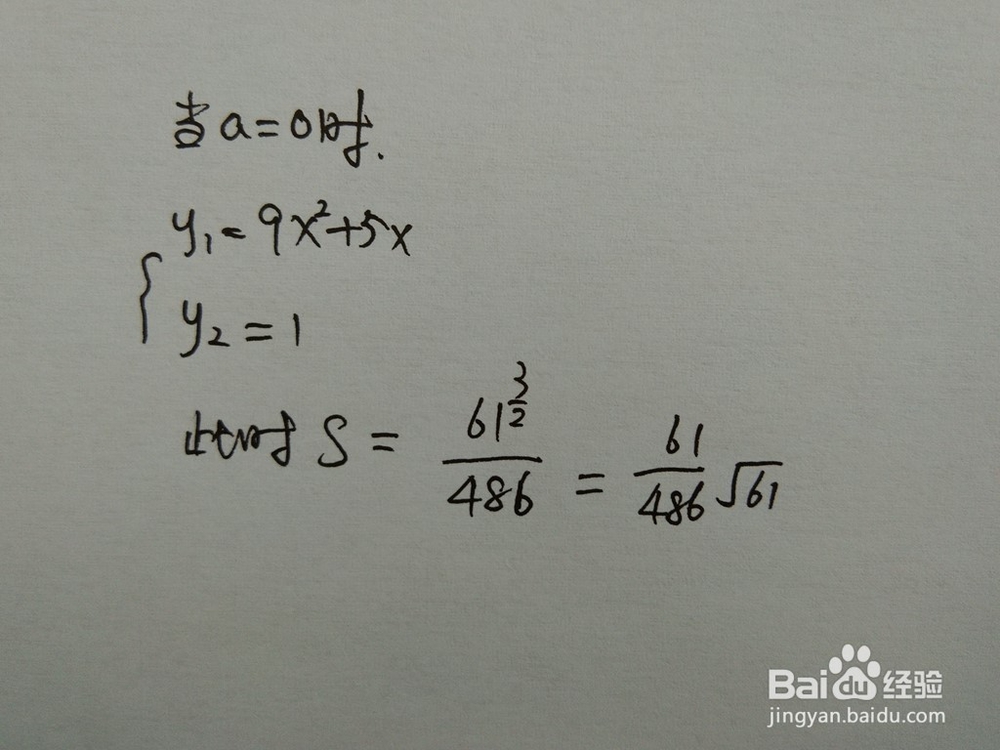 当a=0时.
y₁=9x²+5x
{
y₂=1
此时 S = 61^(3/2)/486 = 61/486 √61
Baidu经验
jingyan.baidu.com